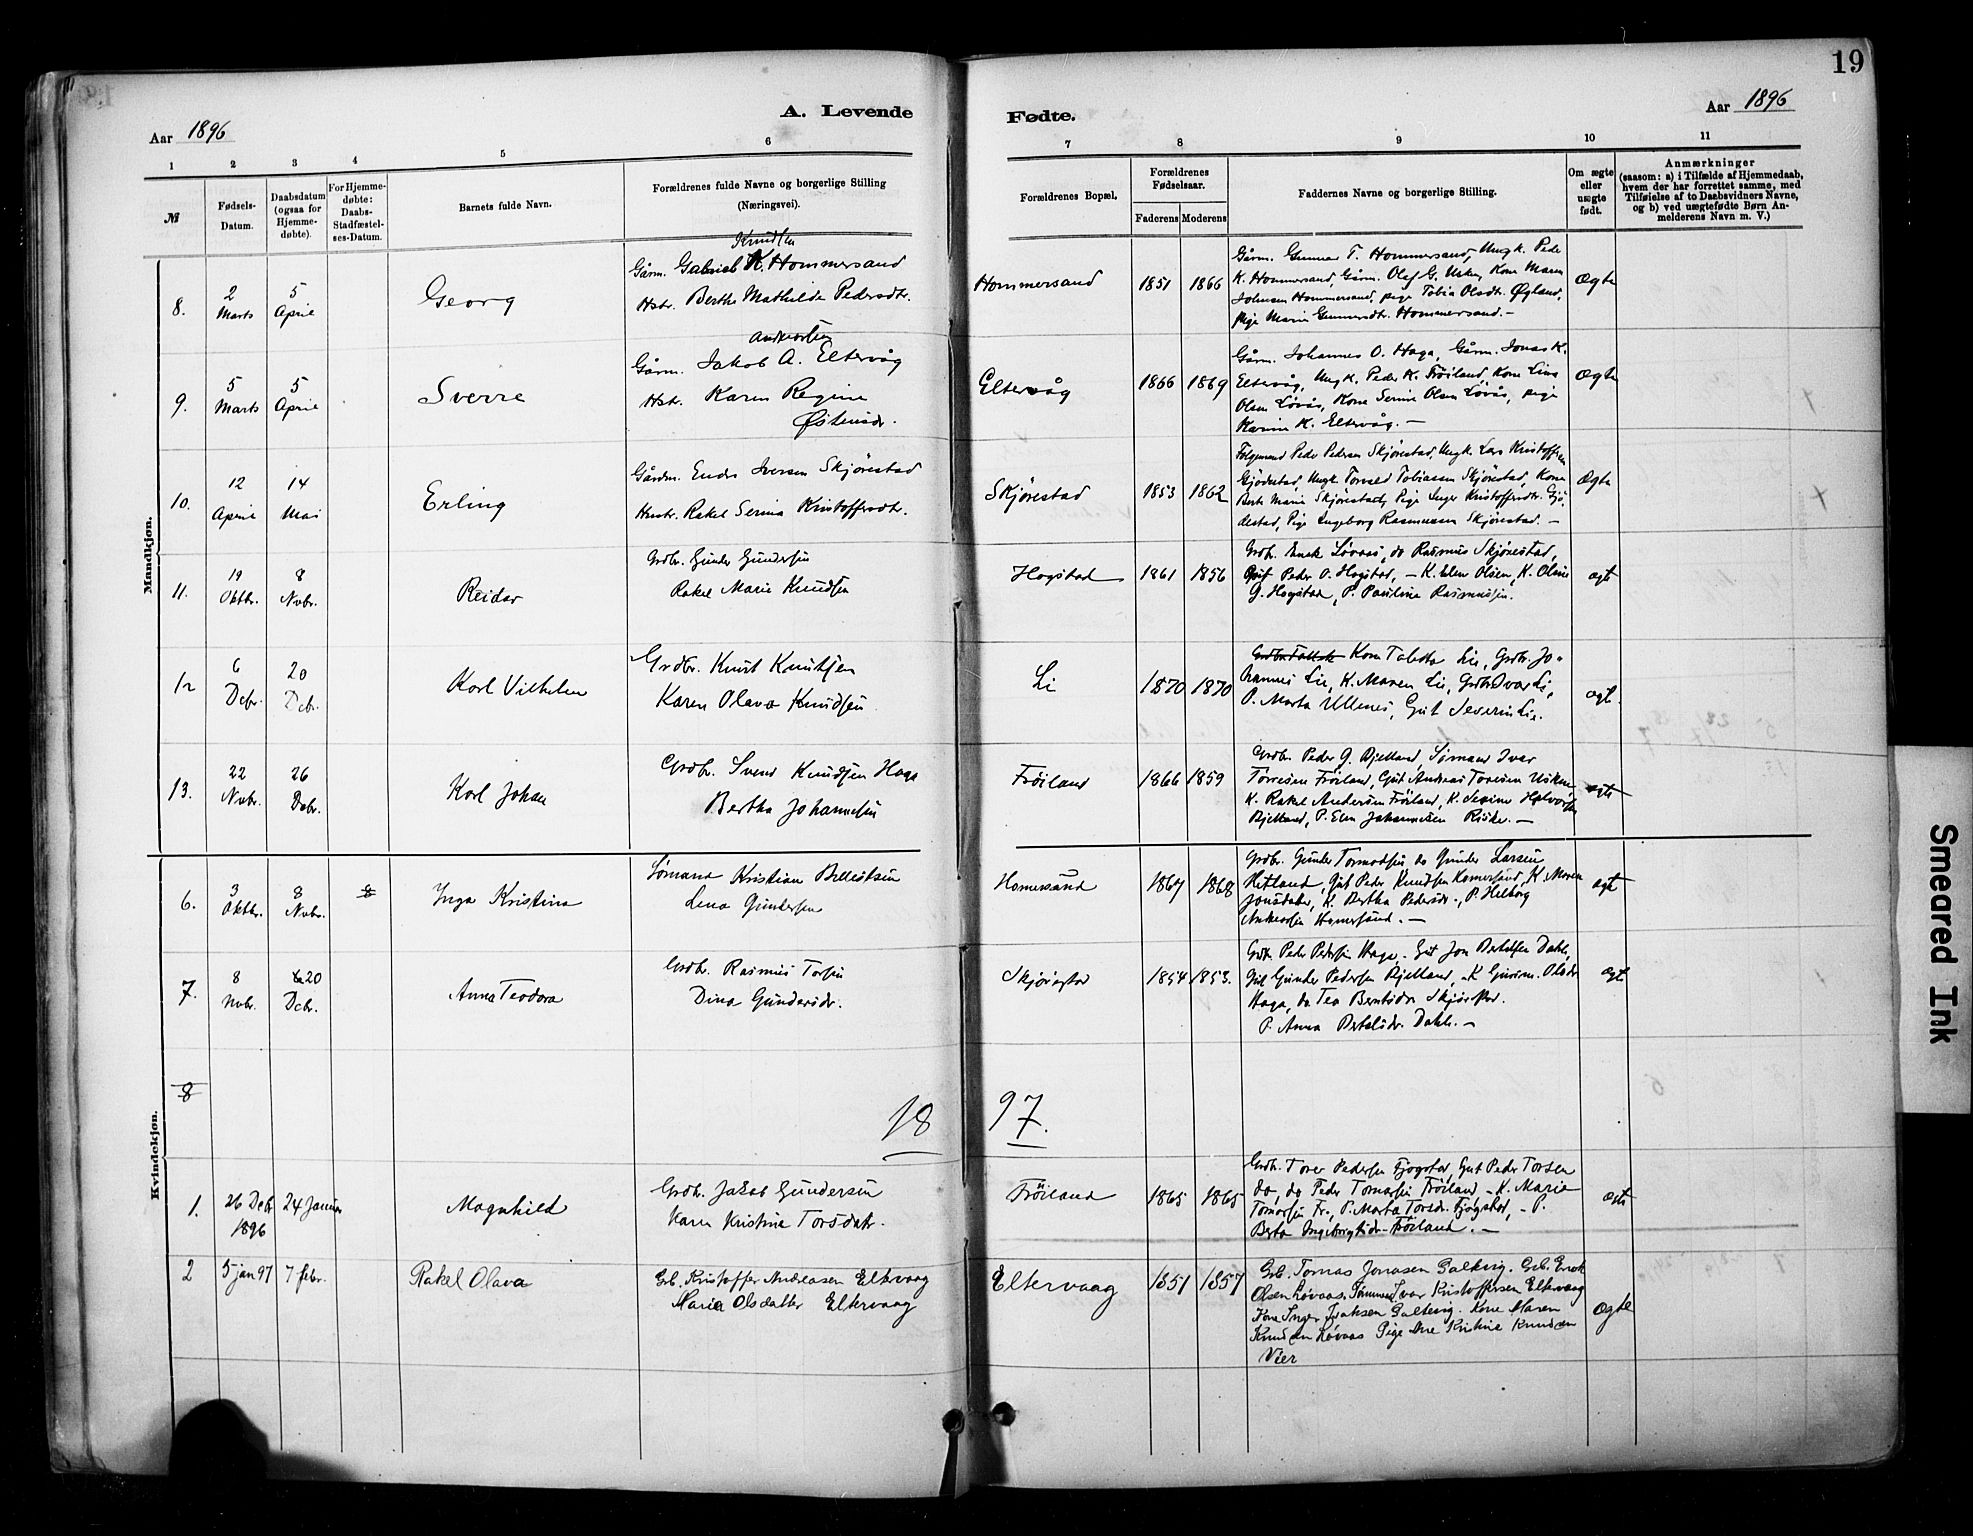 19
A. Levende
Fødte.
Aar 1896
Aar 1896
1 2 3 4 5 6 7 8 9 10 11
№
Fødsels-
Datum.
Daabsdatum
(ogsaa for
Hjemme-
døbte).
For Hjemme-
døbte:
Daabs-
Stadfæstel-
ses-Datum.
Barnets fulde Navn.
Forældrenes fulde Navne og borgerlige Stilling
(Næringsvei).
Forældrenes Bopæl.
Forældrenes
Fødselsaar.
Faderens Moderens
Faddernes Navne og borgerlige Stilling.
Om ægte
eller
uægte
født.
Anmærkninger
(saasom: a) i Tilfælde af Hjemmedaab,
hvem der har forrettet samme, med
Tilføielse af to Daabsvidners Navne,
og b) ved uægtefødte Børn An-
melderens Navn m. V.)
Mandkjøn.
8.
2
Marts
5
April
Georg
Knudsen
Gårm. Gabriel K. Hommersand
Hstr. Berthe Mathilde Pedersdtr.
Hommersand
1851 1866
Gårm. Gunnar T. Hommersand, Ungk. Peder
K. Hommersand, Gårm. Olaf G. Usken, Kone Maren
Johnsen Hommersand, pige Tobia Olsdtr. Øgland,
pige Marie Gunnarsdtr. Hommersand. -
Ægte
9.
5
Marts
5
April
Sverre
Andreassen
Gårm. Jakob A. Eltervåg
Hstr. Karen Regine
Østensdr.
Eltervåg
1866 1869
Gårm. Johannes O. Haga, Gårm. Jonas K.
Eltervåg, Ungk. Peder K. Fröiland, Kone Lina
Olsen Løvås, Kone Serine Olsen Løvås, pige
Karine K. Eltervåg. -
Ægte
10.
12
April
14
Mai
Erling
Gårdm. Endre Iversen Skjørestad
Hustr. Rakel Serina Kristoffersdtr.
Skjørestad
1853 1862
Folgemand Peder Pedersen Skjørestad, Ungk. Lars Kristoffersen
Gjödestad, Ungk. Tobiassen Skjørestad, Kone
Berte Marie Skjørestad, Pige Inger Kristoffersdtr. Gjö-
destad, Pige Ingeborg Rasmussen Skjørestad. -
Ægte
11.
19
Oktbr.
8
Nvbr.
Reidar
Grdbr. Gunder Gundersen
Rakel Marie Knudsen
Hogstad
1861 1856
Grdbr. Enok Løvaas, do Rasmus Skjørestad,
Peder O. Hogstad, - K. Elen Olsen, K. Oline
G. Hogstad, P. Paulina Rasmussen.
ægte
12
6
Dcbr.
20
Dcbr.
Karl Vilhelm
Grdbr. Knut Knutsen
Karen Olava Knudsen
Li
1870 1870
Kone Tabitta Lie, Grdbr. Jo-
hannes Lie, K. Maren Lie, Grdbr. Ivar Li,
P. Marta Ullenes, Gut Severin Lie.
ægte.
13.
22
Nvbr.
26
Dcbr.
Karl Johan
Grdbr. Svend Knudsen Haga
Bertha Johannesen
Fröiland
1866 1859
Grdbr. Peder G. Bjelland, Sømand Ivar
Torresen Fröiland, Gut Andreas Torresen Usken,
K. Rakel Andersen Fröiland, K. Serine Halvorsen
Bjelland, P. Elen Johannesen Riske. -
ægte
Kvindekjøn.
6.
3
Oktbr.
8
Nvbr.
8
Inga Kristina
Sømand Kristian
Lena Gundersen
Homersand
1867 1868
Grdbr. Gunder Tormodsen do Gunder Larsen
Hetland, Gut Peder Knudsen Homersand, K. Maren
Jonsdatter, K. Bertha Pedersdr., P. Helborg
Andersen Homersand. -
ægte
7.
8
Nvbr.
20
Dcbr.
Anna Teodora
Grdbr. Rasmus Torsen
Dina Gundersdr.
Skjørestad
1854 1853.
Grdbr. Peder Pedersen Haga, Gut Jon Bertelsen Dahle,
Gut Gunder Pedersen Bjelland, K Olsdr
Haga, do Tea Berntsdr Skjørestad.
P. Anna Bertelsdr. Dahle. -
ægte
8
18 97.
1.
26 Dcbr
1896
24 Januar
Magnhild
Grdbr. Jakob Gundersen
Karen Kristine Torsdatr.
Fröiland
1865 1865
Grdbr. Tore Pedersen Fjogstad, Gut Peder Torsen
do, do Peder Tomassen Fröiland, K. Maria
Tomassen Fr., P. Marta Torsdr. Fjogstad, - P.
Berta Ingebrigtsdr. Fröiland. -
ægte
2
5 jan 97
7 febr.
Rakel Olava
Grb. Kristoffer Andreasen Eltervaag
Maria Olsdatter Eltervaag
Eltervaag
1851 1857
Grb. Tomas Jonasen Galtevig. Grb. Enok
Olsen Løvaas, Sømand Ivar Kristoffersen Eltervaag
Kone Inger Galtevig. Kone Maren
Knudsen Løvaas Pige Ane Kristine Knudsen
Vier
Ægte
Smeared Ink